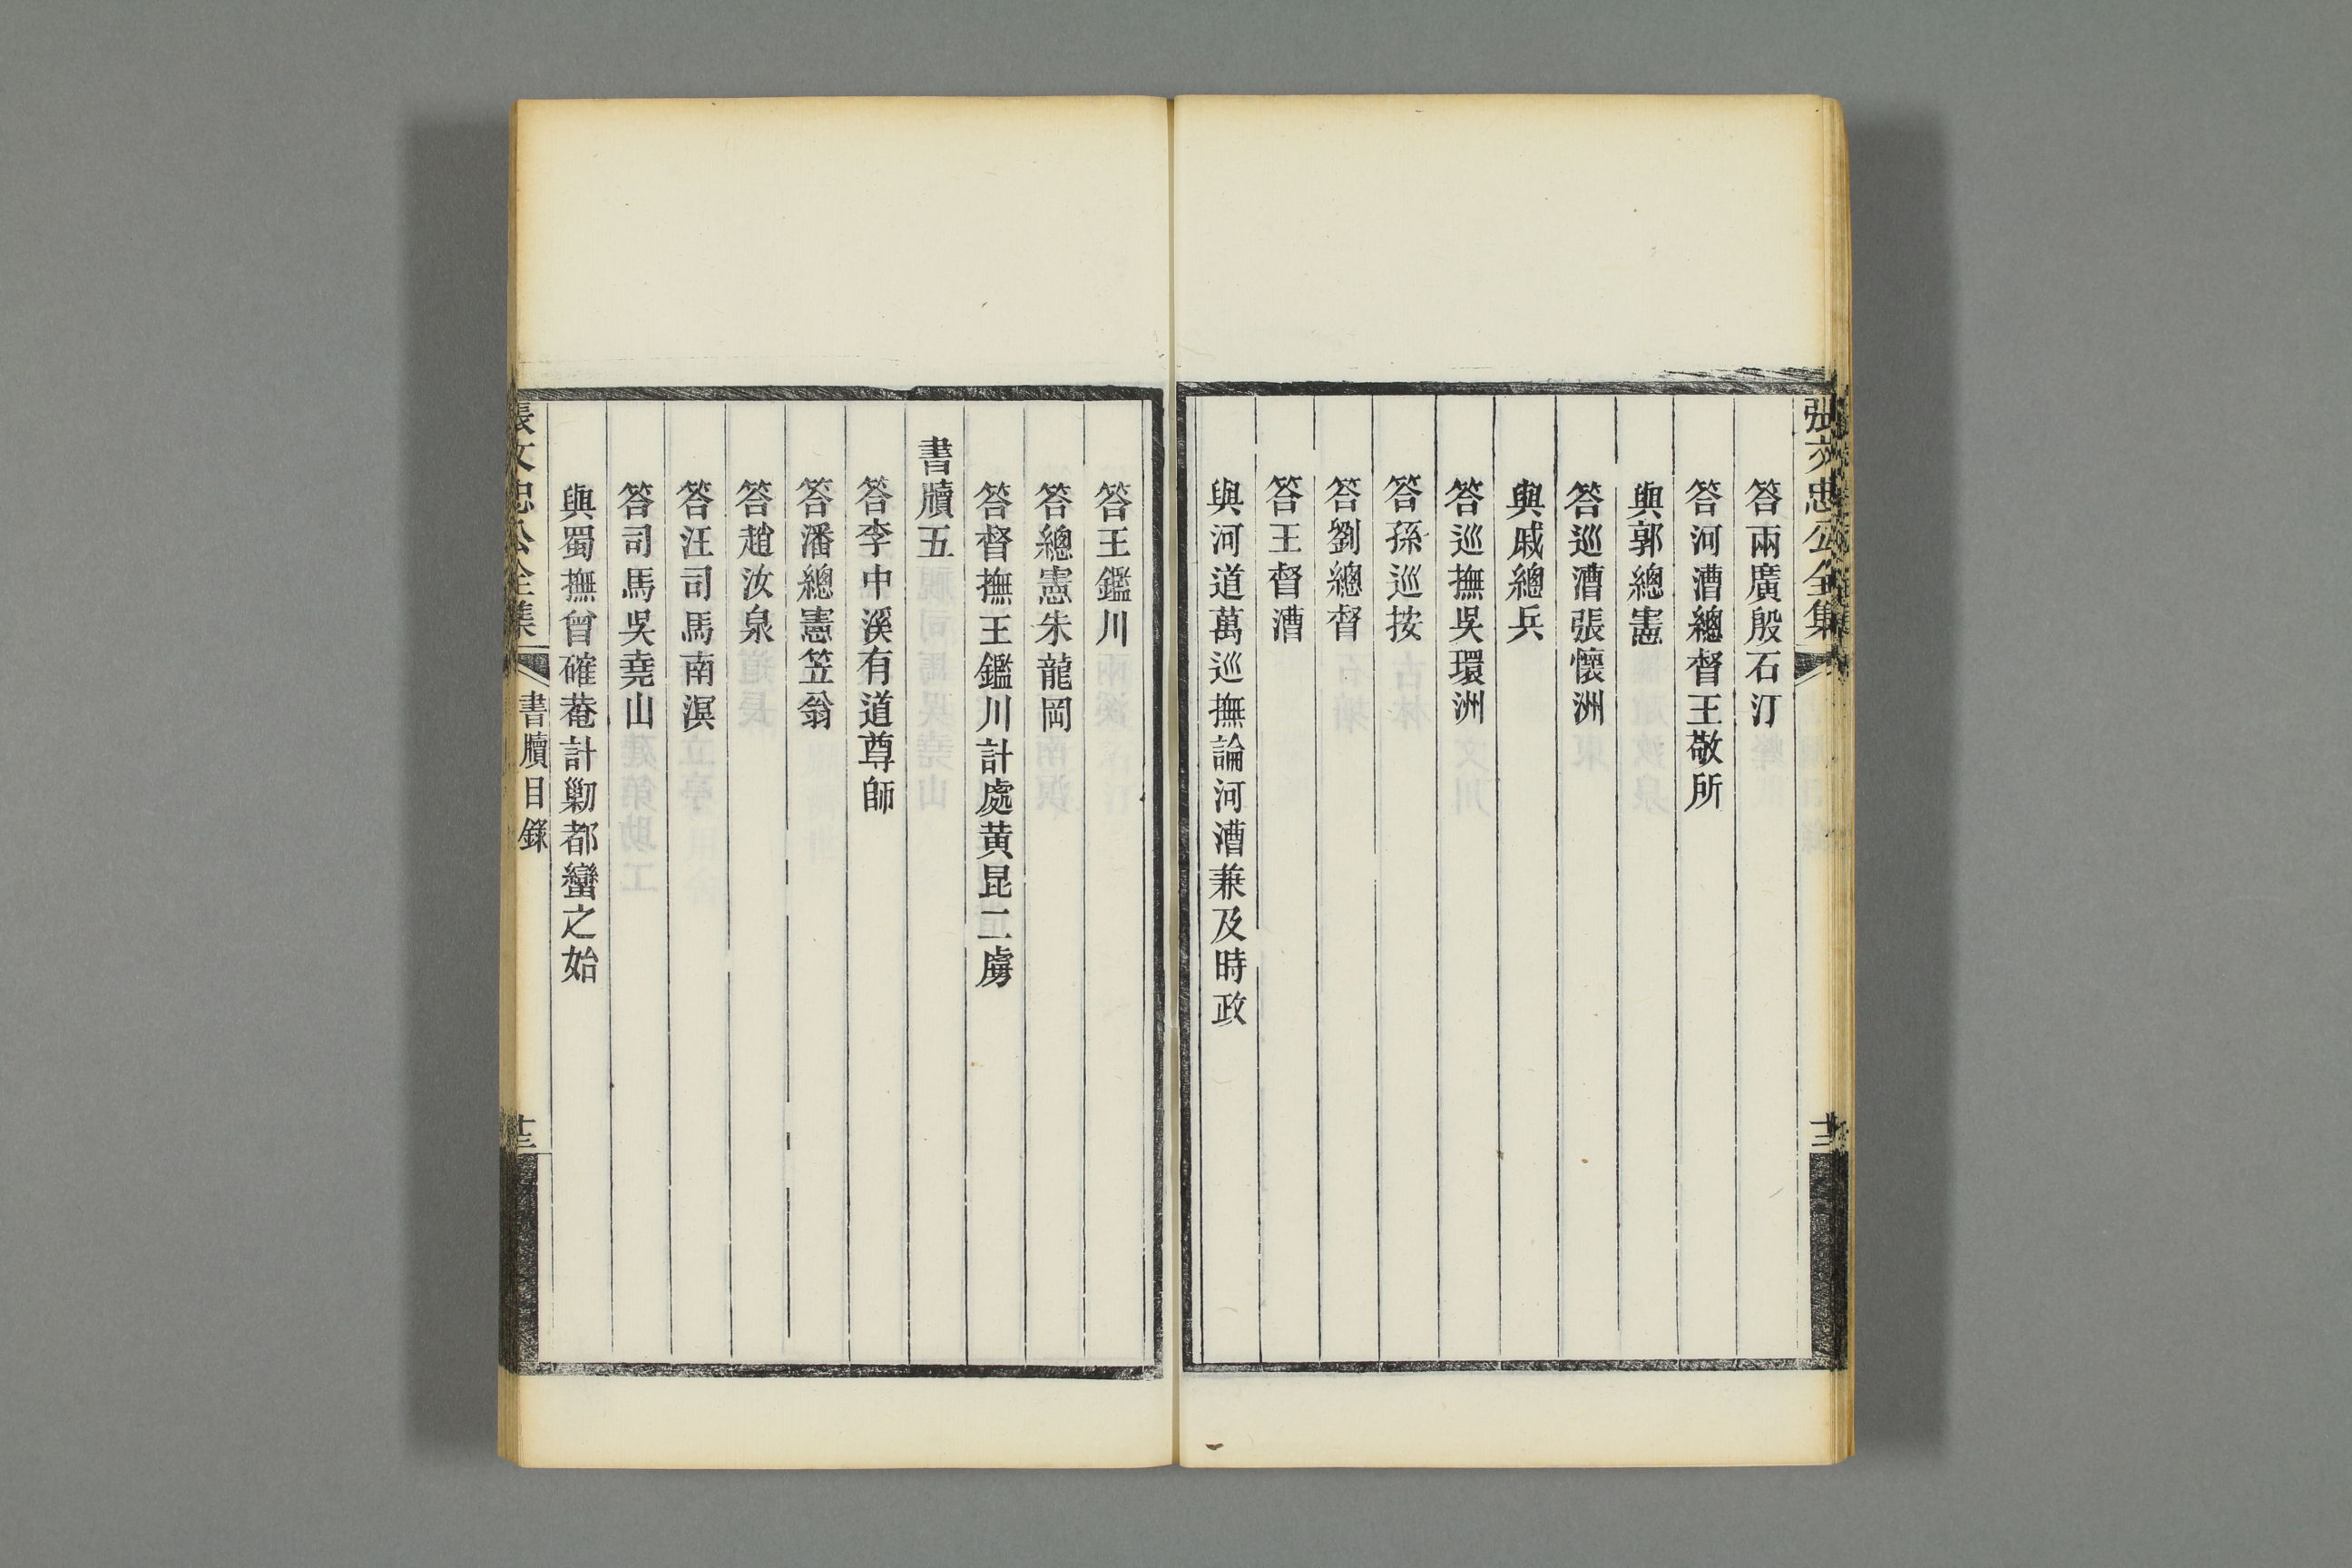 張文忠公全集
答兩廣殷石汀
答河漕總督王敬所
與郭總憲
答巡漕張懷洲
與戚總兵
答巡撫吳環洲
答孫巡按
答劉總督
答王督漕
與河道萬巡撫論河漕兼及時政
十二
答王鑑川
答總憲朱龍岡
答督撫王鑑川計處黃昆二虜
書牘五
答李中溪有道尊師
答潘總憲笠翁
答趙汝泉
答汪司馬南溟
答司馬吳堯山
與蜀撫曾確菴計勦都蠻之始
張文忠公全集
書牘目錄
十三